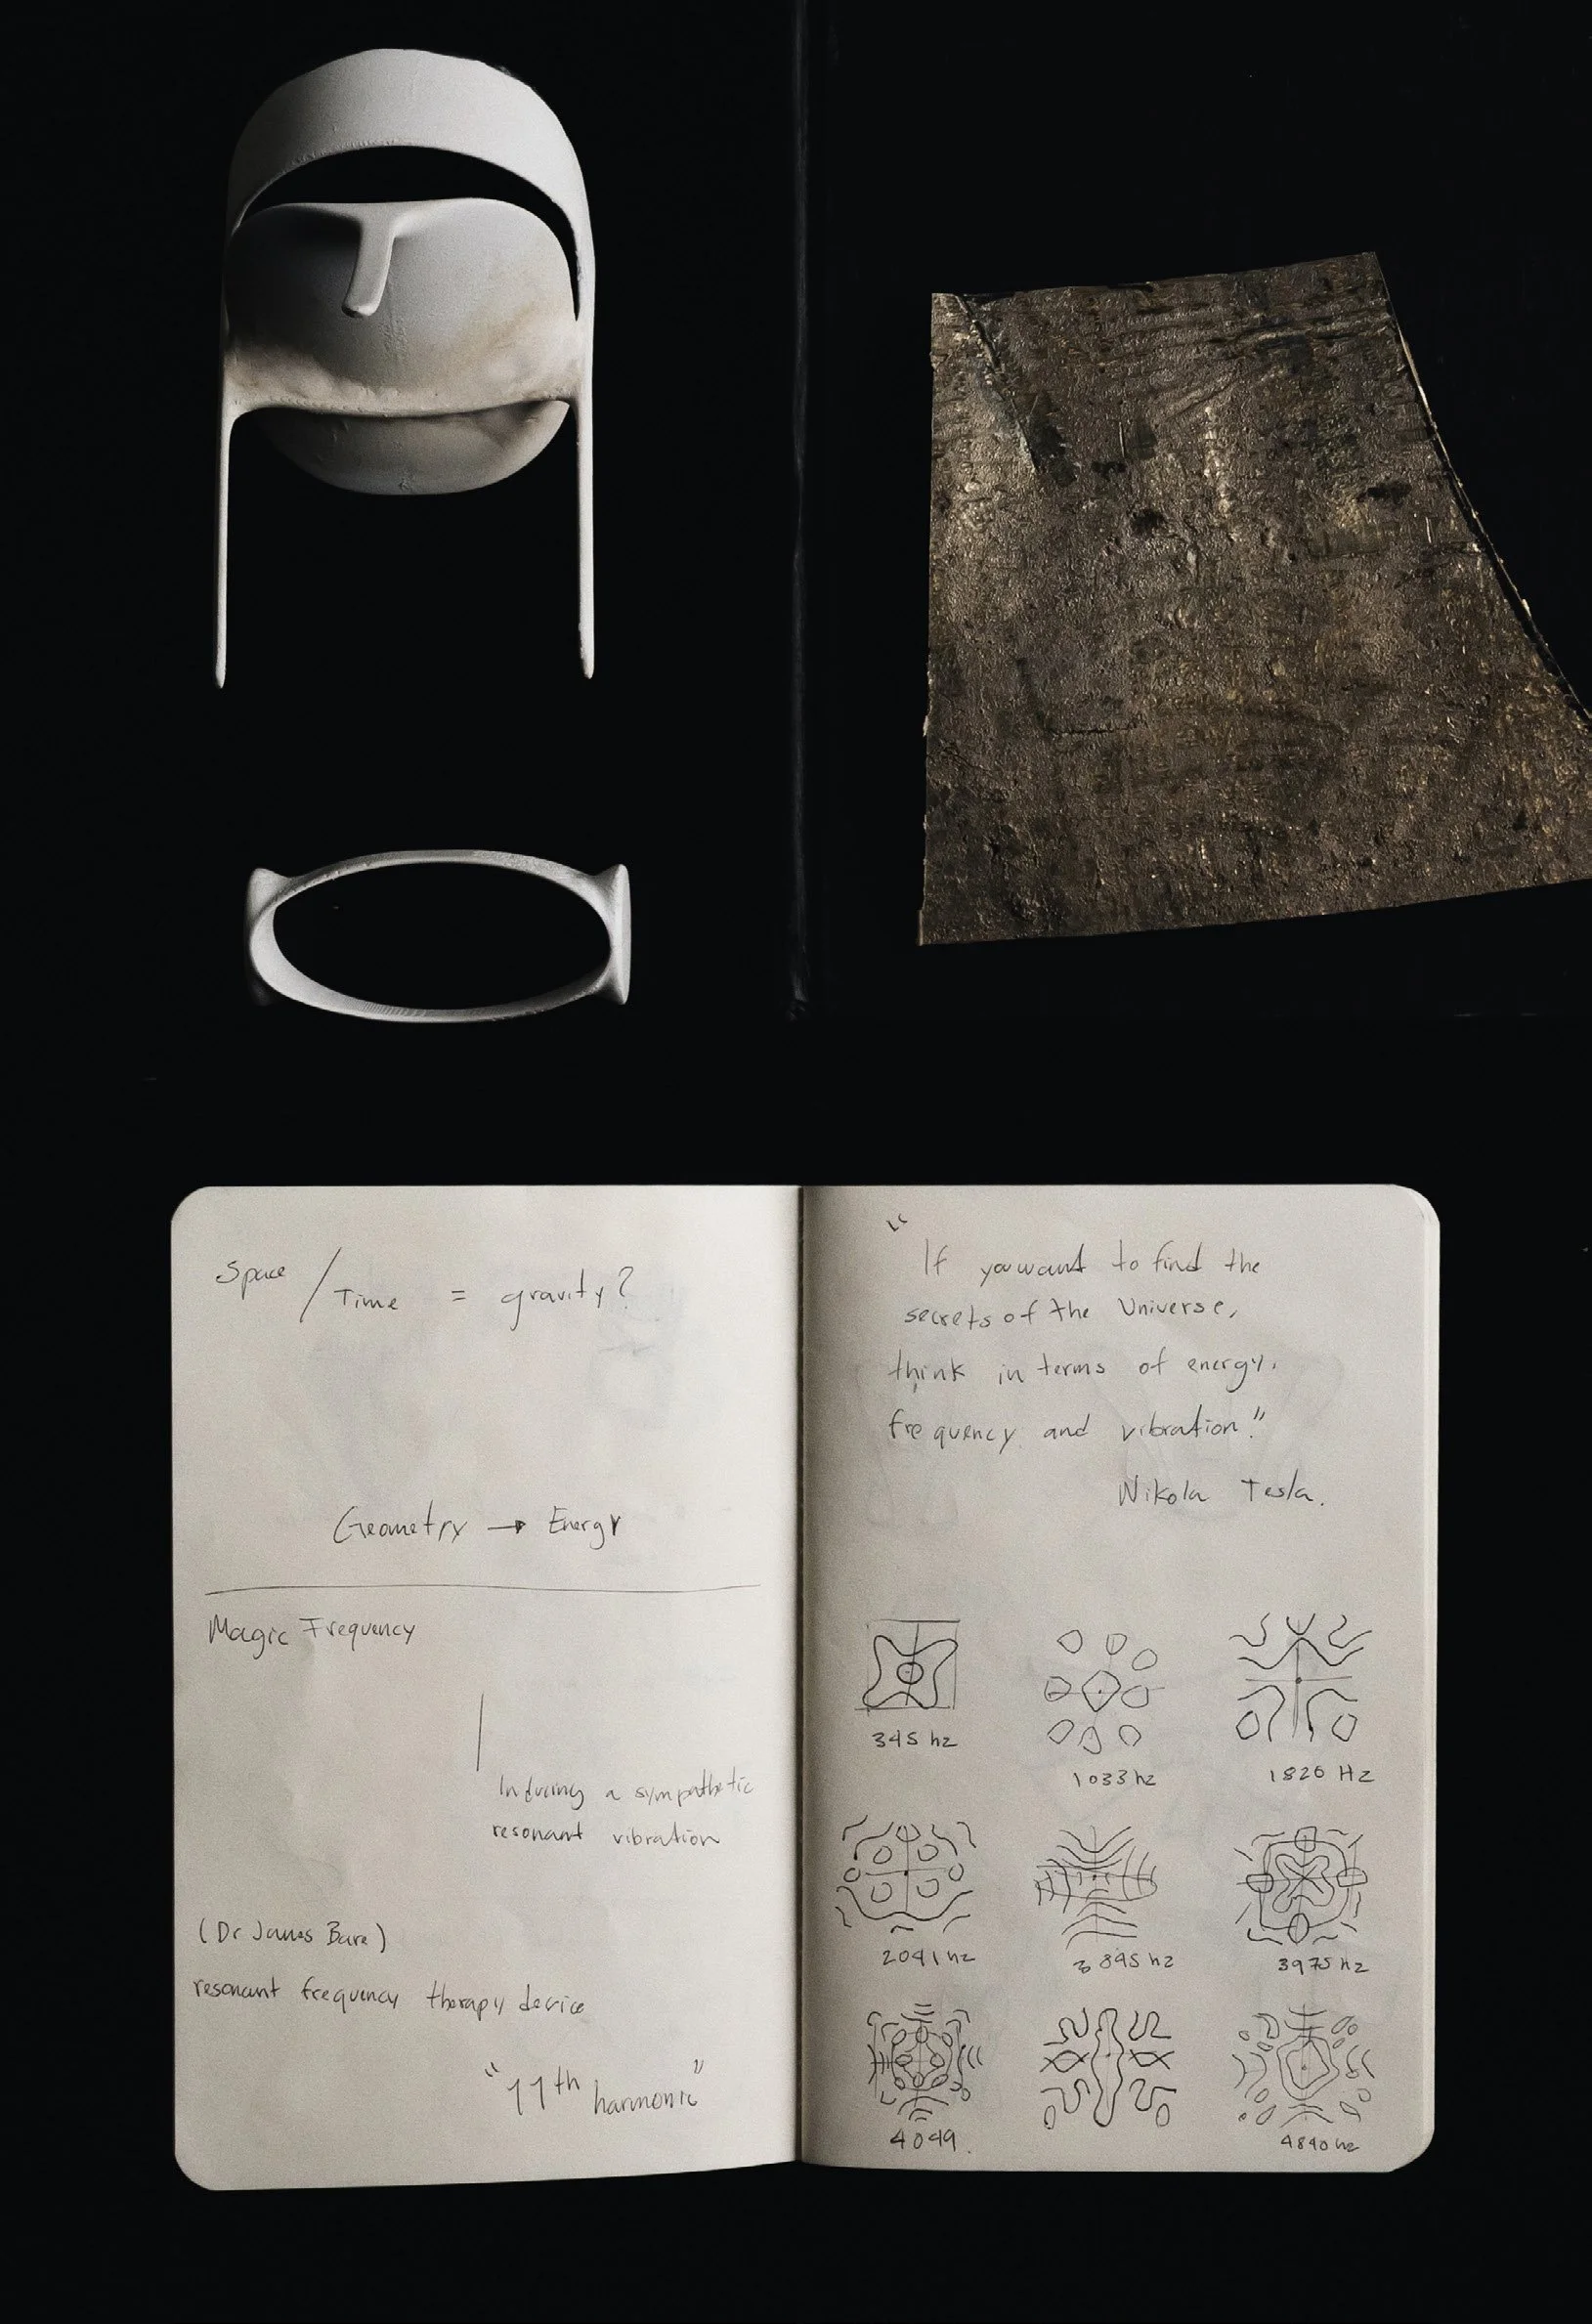 Space / Time = gravity?
Geometry → Energy
Magic Frequency
Inducing a sympathetic
resonant vibration
(Dr James Bare)
resonant frequency therapy device
"11th harmonic"
"
If you want to find the
secrets of the Universe,
think in terms of energy,
frequency and vibration."
Nikola Tesla.
345 hz
1033 hz
1820 Hz
2041 hz
3845 hz
3975 Hz
4049.
4840 hz